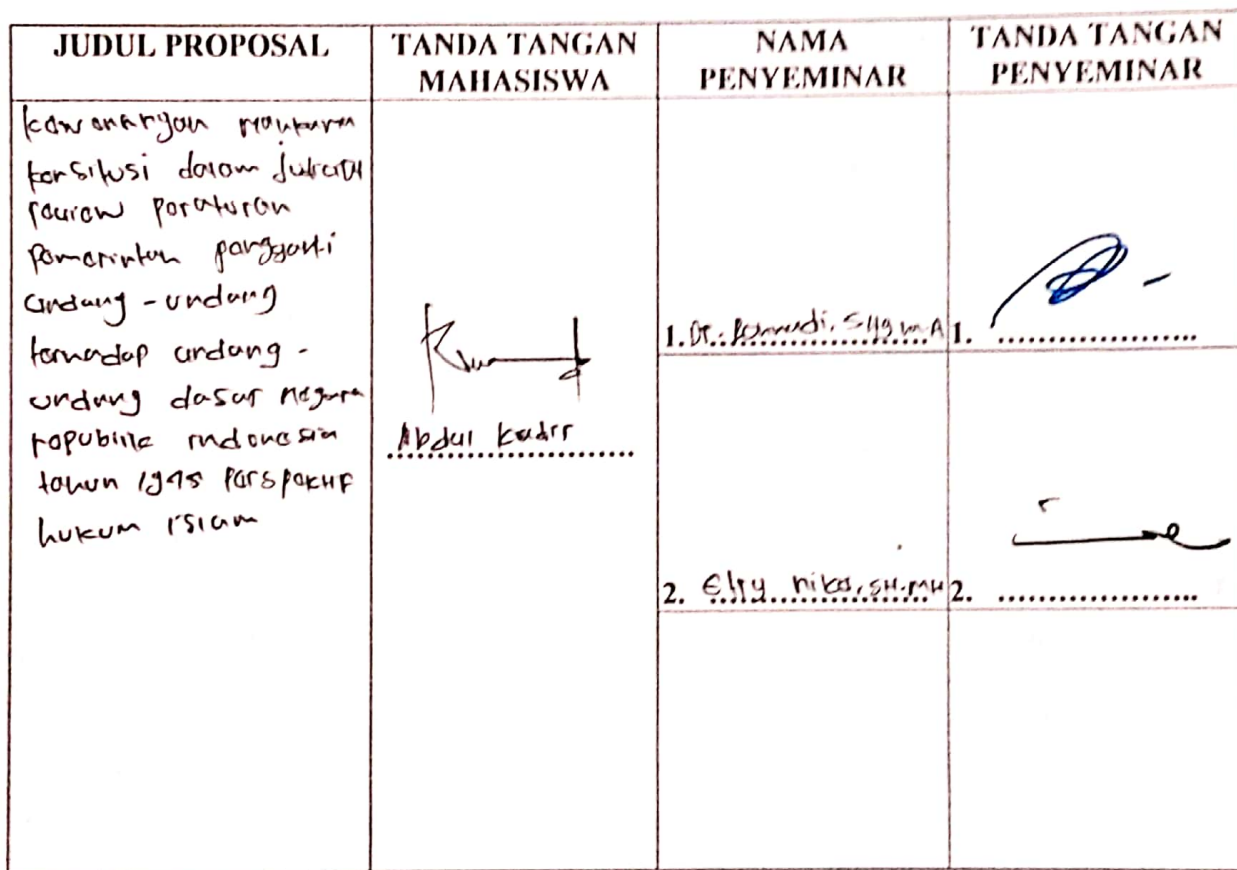 JUDUL PROPOSAL
TANDA TANGAN
MAHASISWA
NAMA
PENYEMINAR
TANDA TANGAN
PENYEMINAR
kewenangan mahkamah
konsitusi dalam judicial
review peraturan
pemerintah pengganti
undang - undang
terhadap undang -
undang dasar negara
republik indonesia
tahun 1945 perspektif
hukum islam
Abdul Kadir
1. Dr. M.A
1. ....................
2. Elry nika, SH.MH
2. ....................